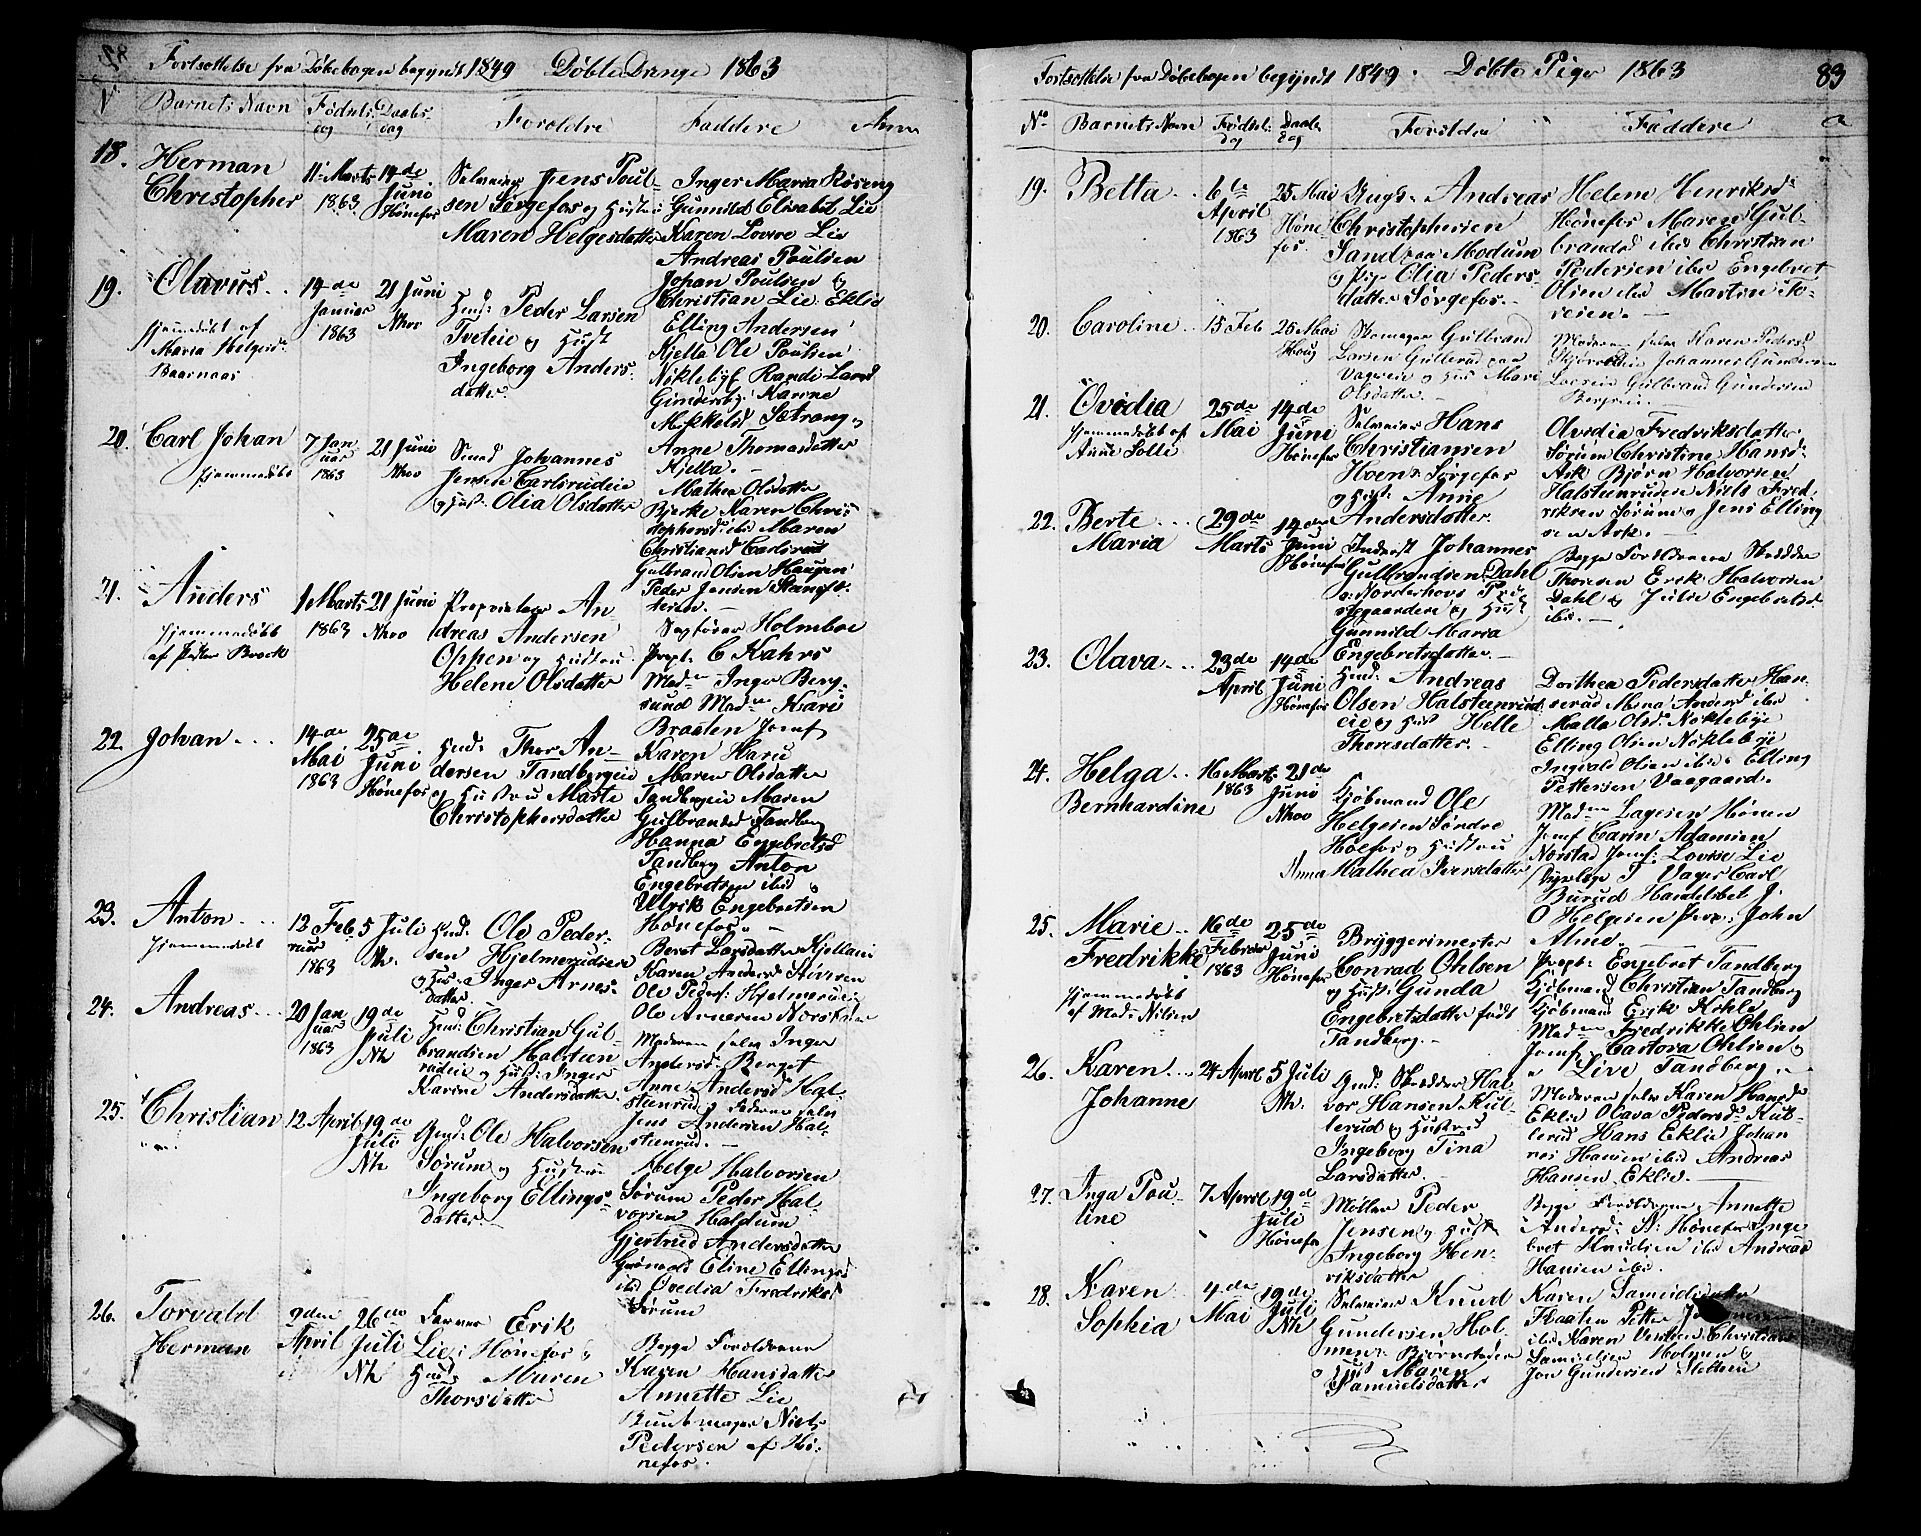 Fortsættelse fra Døbebogen begyndt 1849 Døbte Drenge 1863
N Barnets Navn Fødsels dag Daabs dag Forældre Faddere Anm
18. Herman Christopher
11 Marts 1863
14de Juni Hønefos
Selveier Jens Poul-
sen Sørgefos og Hustru
Maren Helgesdatter
Inger Maria Roseng
Gunnild Elisabet Lie
Karen Lovise Lie
Andreas Poulsen
Johan Poulsen og
Christian Lie Eklie
19. Olavus
hjemmedøbt af
Maria Helgersd:
Baarnaas
14de Januar 1863
21 Juni Nhov
Huusm: Peder Larsen
Tveteie og Hust
Ingeborg Anders-
datter.
Elling Andersen
Kjella Ole Poulsen
Nøklebye Randi Larsd
Gundersby Karine
Mikkelsd Sætrang og
Anne Thomasdatter
Kjella.
20. Carl Johan
hjemmedøbt
7 Januar 1863
21 Juni Nhov
Smed Johannes
Jensen Carlsrudeie
og Hust. Olia Olsdatter
Mathea Olsdatter
Bjerke Karen Chris
tophersd ibid Maren
Christiansd Carlsrud
Gulbrand Olsen Haugen
Peder Jensen
21. Anders
hjemmedøbt
af Pastor Brock
1 Marts 1863
21 Juni Nhov
Proprietær An-
dreas Andersen
Oppen og Hustru
Helene Olsdatter
Sagfører Holmboe
Propt: C Kahrs
Madm Inger Berg-
sund Madm Kari
Braaten Jomf
22. Johan
14de Mai 1863
25de Juni Hønefos
Huusm: Thor An-
dersen Tandbergeie
og Hustru Marte
Christophersdatter
Karen Haru
Maren Olsdatter
Tandbergeie Maren
Gulbrandsd Tandberg
Hanna Engebretsd
Tandberg Anton
Engebretsen ibid og
Ulrik Engebretsen
Hønefos.
23. Anton
hjemmedøbt
12 Februar 1863
5 Juli Nh.
Huusm: Ole Peder-
sen Hjelmerudeie
og Hus: Inger Arnes-
datter.
Beret Larsdatter Kjellani
Karen Andersd
Ole Peders: Hjelmerudeie
Ole Arnesen
24. Andreas
20 Januar 1863
19de Juli Nh
Huusm: Christian Gul-
brandsen Halsteen
rudeie og Hust: Inger
Karine Andersdatter
Moderen selv Inger
Andersd: Berget
Anne Andersd Hal-
stenrud og Faderen selv
Jens Andersen Hal-
stenrud.
25. Christian
12 April
19de Juli Nh
Gmd: Ole Halvorsen
Sørum og Hustru
Ingeborg Ellings-
datter
Helge Halvorsen
Sørum Peder Hal-
vorsen Haldum
Gjertrud Andersdatter
Eline Ellingsd
ibid Ovedia Fredriksd
Sørum
26. Torvald
Herman
9den April
26de Juli Nh
Farver Erik
Lie i Hønefos og
Hus Maren
Thorsdatter
Begge Forældrene
Karen Hansdatter
Annette Lie
Buntmager Niels
Pedersen af Hø-
nefos.
Fortsættelse fra Døbebogen begyndt 1849. Døbte Piger 1863 83
No Barnets Navn Fødsels dag Daabs dag Forældre Faddere
19. Betta
6te April 1863
25 Mai Hønefos.
Ungk. Andreas
Christophersen
Sand paa Modum
og Pige Olia Peders-
datter Sørgefos.
Helene Henriksd:
Hønefos Maren Gul-
brandsd ibid Christian
Pedersen ibid Engebret
Olsen ibid Marten
20. Caroline
15 Feb
25 Mai Houg
Skomager Gulbrand
Larsen Gullerud paa
og Hus Mari
Olsdatter.
Moderen selv Karen Pedersd
Johannes Gundersen
Gulbrand Gundersen
21. Ovidia
hjemmedøbt af
Anne Solli
25de Mai
14de Juni Hønefos
Selveier Hans
Christiansen
Hvens Sørgefos
og Hust. Anne
Andersdatter.
Ovidia Fredriksdatter
Sørum Christine Hansd:
Ask Bjørn Halvorsen
Halsteenrudeie Niels Fred
riksen Sørum og Jens Elling
sen Ask.
22. Berte
Maria
29de Marts
14de Juni Hønefos
Inderst Johannes
Gulbrandsen Dahl
Norderhovs Præ-
stegaardeie og Hust
Gunnild Maria
Engebretsdatter.
Begge Forældrene Skrædder
Thoresen Erik Halvorsen
Dahl og Julie Engebretsd
ibid.
23. Olava
23de April
14de Juni Hønefos
Huusm: Andreas
Olsen Halsteenrud
eie og Hust Helle
Thoresdatter.
Dorthea Pedersdatter Han-
serud Mina Andersd ibid
Malla Olsd: Nøklebye
Elling Olsen Nøklebye
Ingvald Olsen ibid Elling
Pettersen Vaagaard.
24. Helga
Bernhardine
16 Marts 1863
21de Juni Nhov
Kjøbmand Ole
Helgesen Søndre
Hølfos og Hustru
Anna Mathea Iversdatter
Madm Lagesen Hønen
Jomf Carin Adamsen
Norstad Jomf: Lovise Lie
Vager Carl
Burud Handelsbet J.
O Helgesen Prop: John
Alme.
25. Marie
Fredrikke
hjemmedøbt
af Mad: Nilsen
16de Februar 1863
25de Juni Hønefos
Bryggerimester
Conrad Ohlsen
og Hust: Gunda
Engebretsdatter født
Tandberg.
Propt: Engebret Tandberg
Kjøbmand Christian Tandberg
Kjøbmand Erik Kihle
Madm Fredrikke Ohlsen
Jomf Castora Ohlsen og
" Live Tandberg
26. Karen
Johanne
24 April
5 Juli Nh.
Gmd: Skrædder Hal-
vor Hansen Kul-
lerud og Hustru
Ingeborg Tina
Larsdatter
Moderen selv Karen Hansd
Eklie Olava Pedersd: Kul-
lerud Hans Eklie Johan
nes Hansen ibid Andreas
Hansen Eklie.
27. Inga Pou-
line
7 April
19de Juli Hønefos
Møller Peder
Jensen og Hust
Ingeborg Hen-
riksdatter
Begge Forældrene Annette
Andersd: N: Hønefos Inge
bret Knudsen ibid Andreas
Hansen ibid.
28. Karen
Sophia
4de Mai
19de Juli Nh
Selveier Knud
Gundersen Hol-
men Bjørnstadeie
og Hus Maren
Samuelsdatter
Karen Samuelsdatter
Petter
ibid Karen Christians
Samuelsen Holmen og
Jon Gundersen Sletten